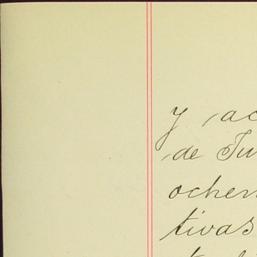 y ac
de Ju
ochen
tivas